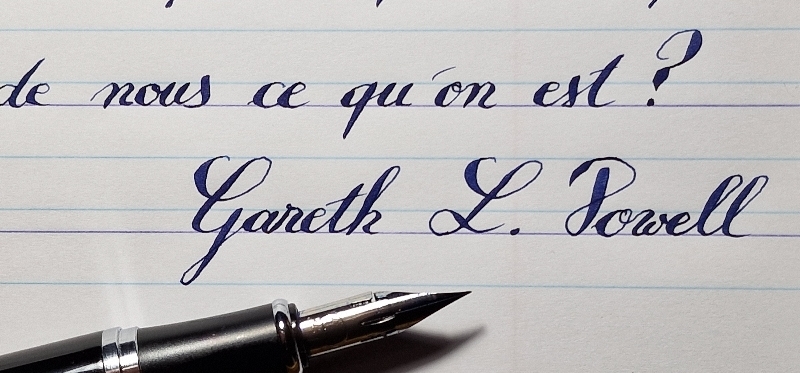 de nous ce qu'on est ?
Gareth L. Powell